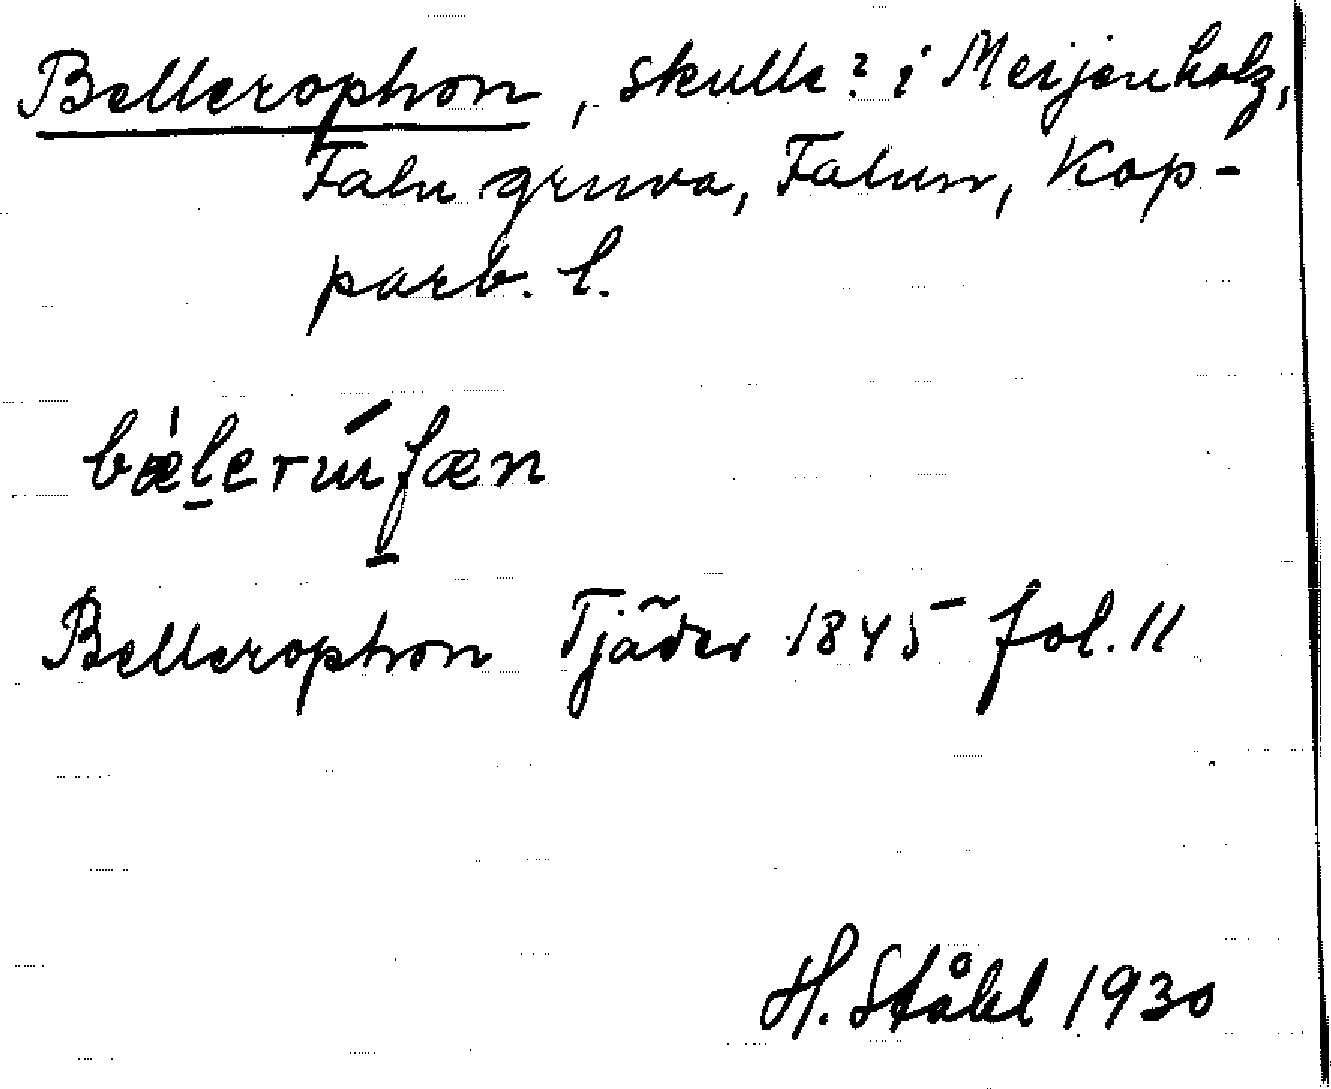 Bellerophon, skulle? i Meijenholz,
Falu gruva, Falun, Kop-
parb. l.
bælerùfæn
Bellerophon Tjäder 1845 fol. 11
H. Ståhl 1930